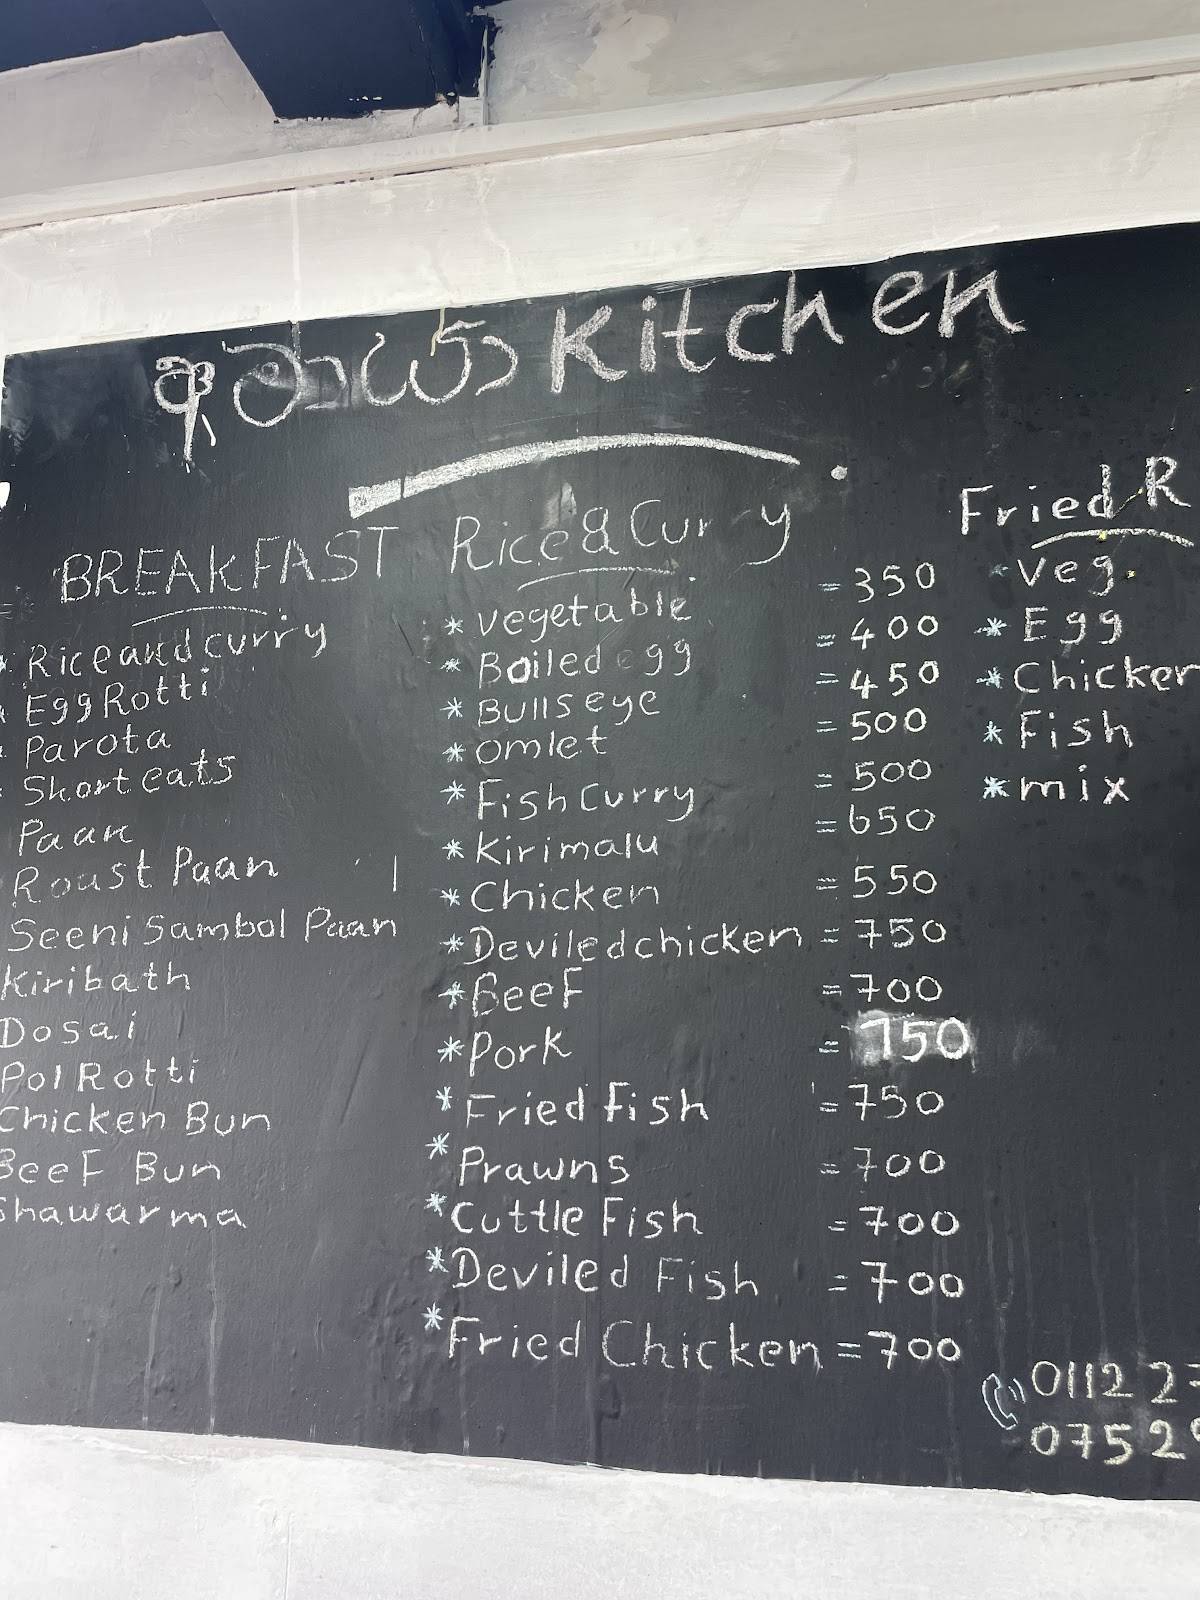 Kitchen
BREAKFAST
* Rice and curry
* Egg Rotti
* Parota
* Short eats
Paan
Roast Paan
Seeni Sambol Paan
Kiribath
Dosai
Pol Rotti
Chicken Bun
Beef Bun
Shawarma
Rice & Curry
* vegetable = 350
* Boiled egg = 400
* Bullseye = 450
* omlet = 500
* Fish Curry = 500
* Kirimalu = 650
* Chicken = 550
* Deviled chicken = 750
* Beef = 700
* Pork = 750
* Fried Fish = 750
* Prawns = 700
* Cuttle Fish = 700
* Deviled Fish = 700
* Fried Chicken = 700
Fried R
* Veg.
* Egg
* Chicken
* Fish
* mix
0112 27
0752